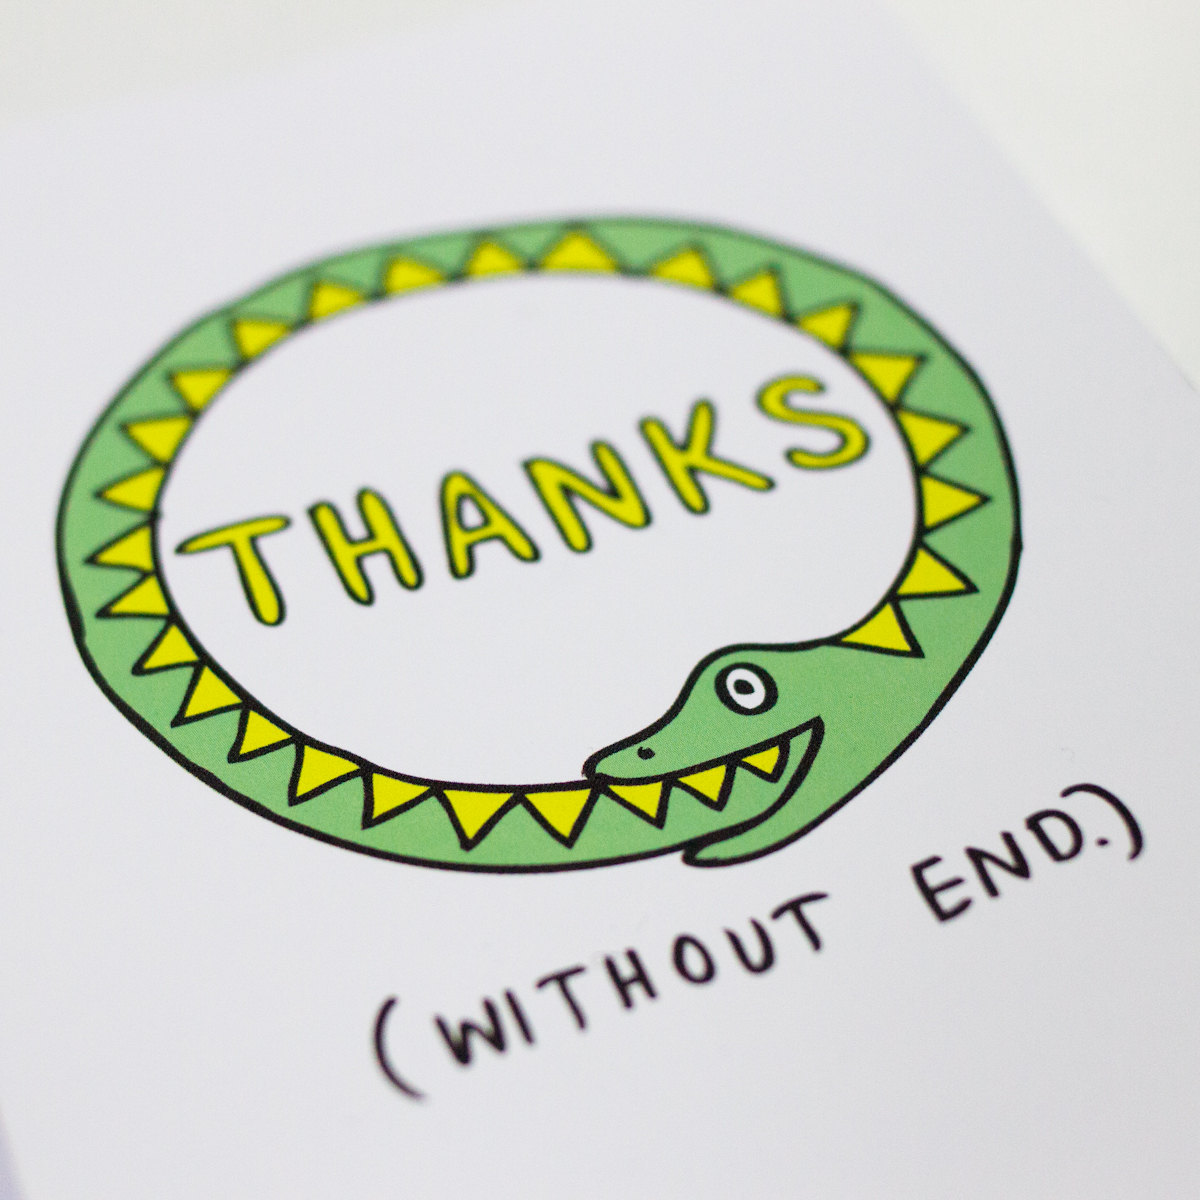 THANKS
(WITHOUT END.)